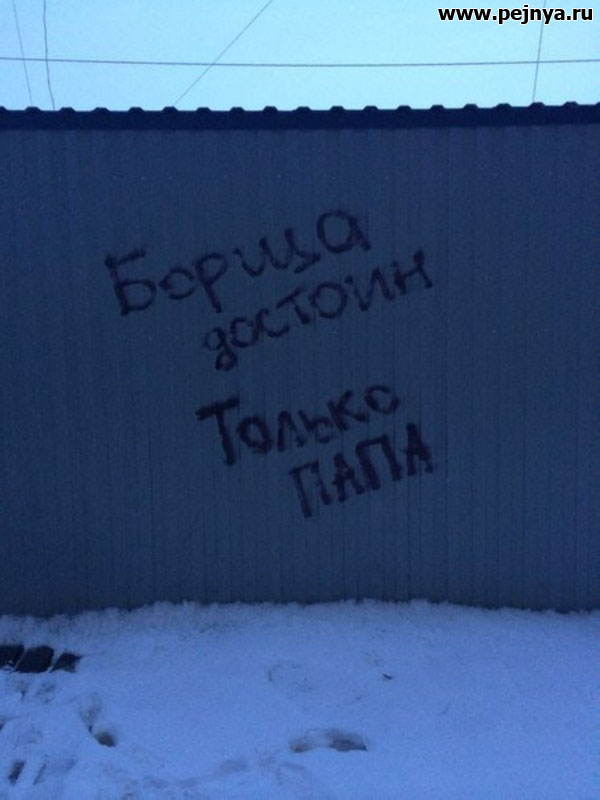 www.pejnya.ru
Борща
достоин
Только
ПАПА